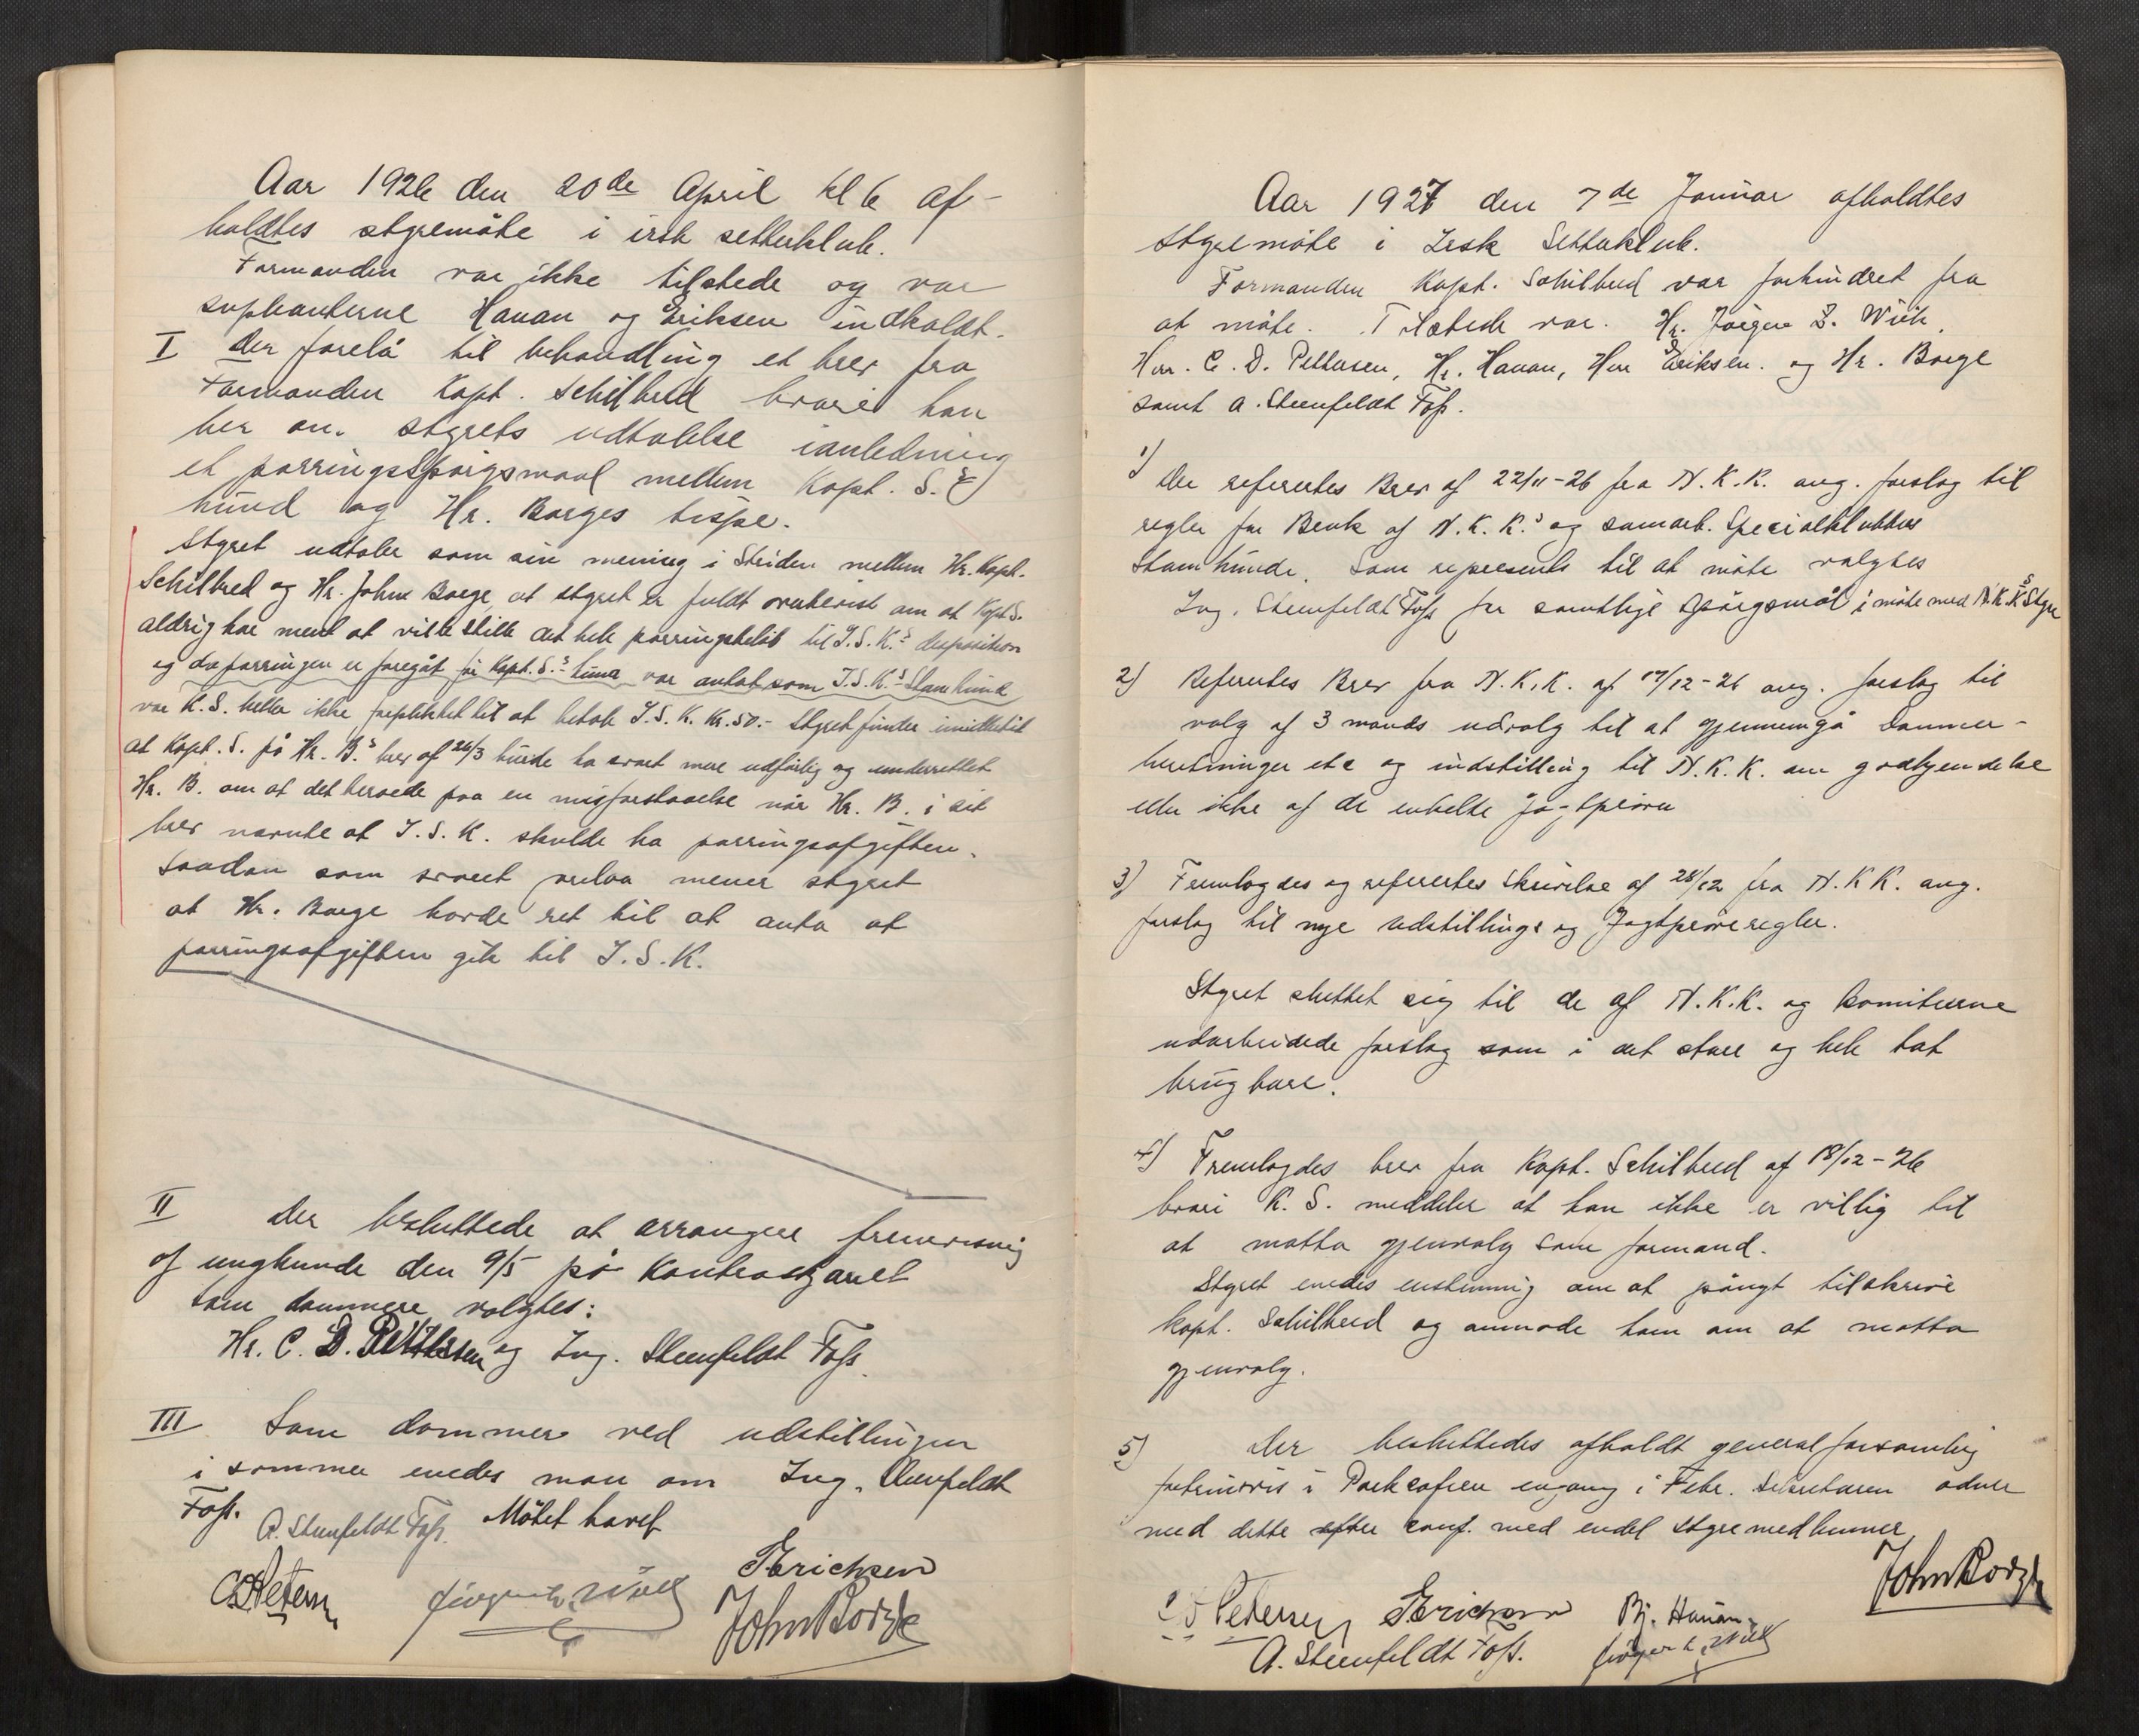 Aar 1926 den 20de April kl 6 af-
holdtes styremöte i irsk setterklub.
Formanden var ikke tilstede og var
supleanterne Hanan og Eriksen indkaldt.
I Der forelå til behandling et brev fra
Formanden Kapt. Schilbred hvori han
ber om styrets udtalelse ianledning
et parringsspörgsmaal mellem Kapt. S.s
hund og Hr. Borges tispe.
Styret udtaler som sin mening i Striden mellem Hr. Kapt.
Schilbred og Hr. John Borge at styret er fuldt overbevist om at Kapt S.
aldrig har ment at ville stille det hele parringsbelöb til I.S.K.s disposition
og da parringen er foregåt för Kapt. S.s hund var antat som I.S.K.s Stamhund
var K.S. heller ikke forpliktet til at betale I.S.K. Kr. 50.- Styret finder imidlertid
at Kapt. S. på Hr. B.s brev af 26/3 burde ha svart mere udförlig og underrettet
Hr. B. om at det beroede paa en misforstaaelse når Hr. B. i sit
brev nævnte at I.S.K. skulde ha parringsafgiften.
Saadan som svaret mener styret
at Hr. Borge havde ret til at anta at
parringsafgiften gik til I.S.K.
II Der besluttede at arrangere fremvisning
af unghunde den 9/5 på Kontraskjæret
Som dommere valgtes:
Hr. C. D. Pettersen og Ing. Steenfeldt Foss.
III Som dommer ved udstillingen
i sommer enedes man om Ing. Steenfeldt
Foss. A. Steenfeldt Foss. Mötet hævet
C D Petersen Jörgen Z. Wiik Erichsen
John Borge
Aar 1927 den 7de Januar afholdtes
styremöte i Irsk Setterklub.
Formanden Kapt. Schilbred var forhindret fra
at möte. Tilstede var. Hr. Jörgen Z. Wiik,
Herr. C. D. Pettersen, Hr. Hanan, Herr Eriksen. og Hr. Borge
samt A. Steenfeldt Foss.
1) Der refertes Brev af 22/11-26 fra N.K.K. ang. forslag til
regler for Benk af N.K.K.s og samarb. Specialklubbers
Stamhunde. Som represent til at möte valgtes
Ing. Steenfeldt Foss for samtlige spörgsmål i möte med N.K.K.s Styre
2) Refertes Brev fra N.K.K. af 17/12-26 ang. forslag til
valg af 3 mands udvalg til at gjennemgå Dommer-
beretninger etc og indstilling til N.K.K. om godkjendelse
eller ikke af de enkelte Jagtpröver
3) Fremlagdes og refertes Skrivelse af 28/12 fra N.K.K. ang.
forslag til nye udstillings og Jagtpröveregler.
Styret sluttet sig til de af N.K.K. og komiteerne
udarbeidede forslag som i det store og hele tat
brugbare.
4) Fremlagdes brev fra Kapt. Schilbred af 18/12-26
hvori K.S. meddeler at han ikke er villig til
at motta gjenvalg som formand.
Styret enedes enstemmig om at pånyt tilskrive
Kapt. Schilbred og anmode ham om at motta
gjenvalg.
5) Der besluttedes afholdt generalforsamling
fortrinsvis i Parkcafeen engang i Febr. Sekretæren ordner
med dette efter conf. med endel styremedlemmer.
John Borge
C D Petersen Erichsen Bj. Hanan.
A. Steenfeldt Foss. Jörgen Z. Wiik